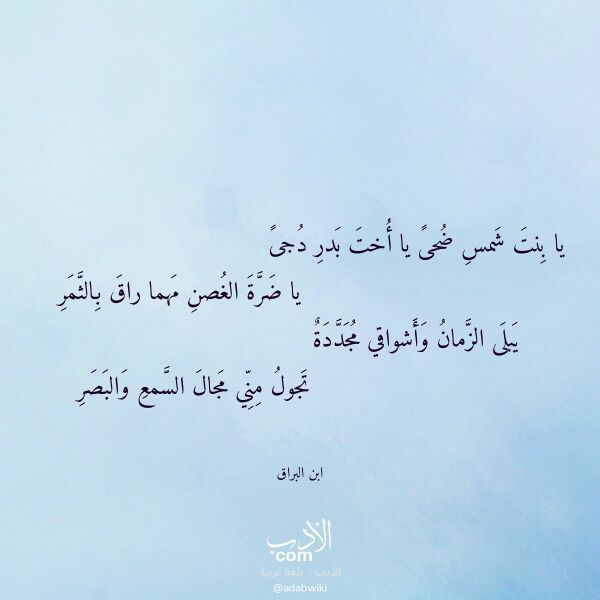 يا بِنتَ شَمسِ ضُحىً يا أُختَ بَدرِ دُجىً
يا ضَرَّةَ الغُصنِ مَهما راقَ بِالثَّمَرِ
يَبلَى الزَّمانُ وَأَشواقي مُجَدَّدَةٌ
تَجولُ مِنِّي مَجالَ السَّمعِ وَالبَصَرِ
ابن البراق
الأدب
com
الأدب .. بلغة عربية
@adabwiki